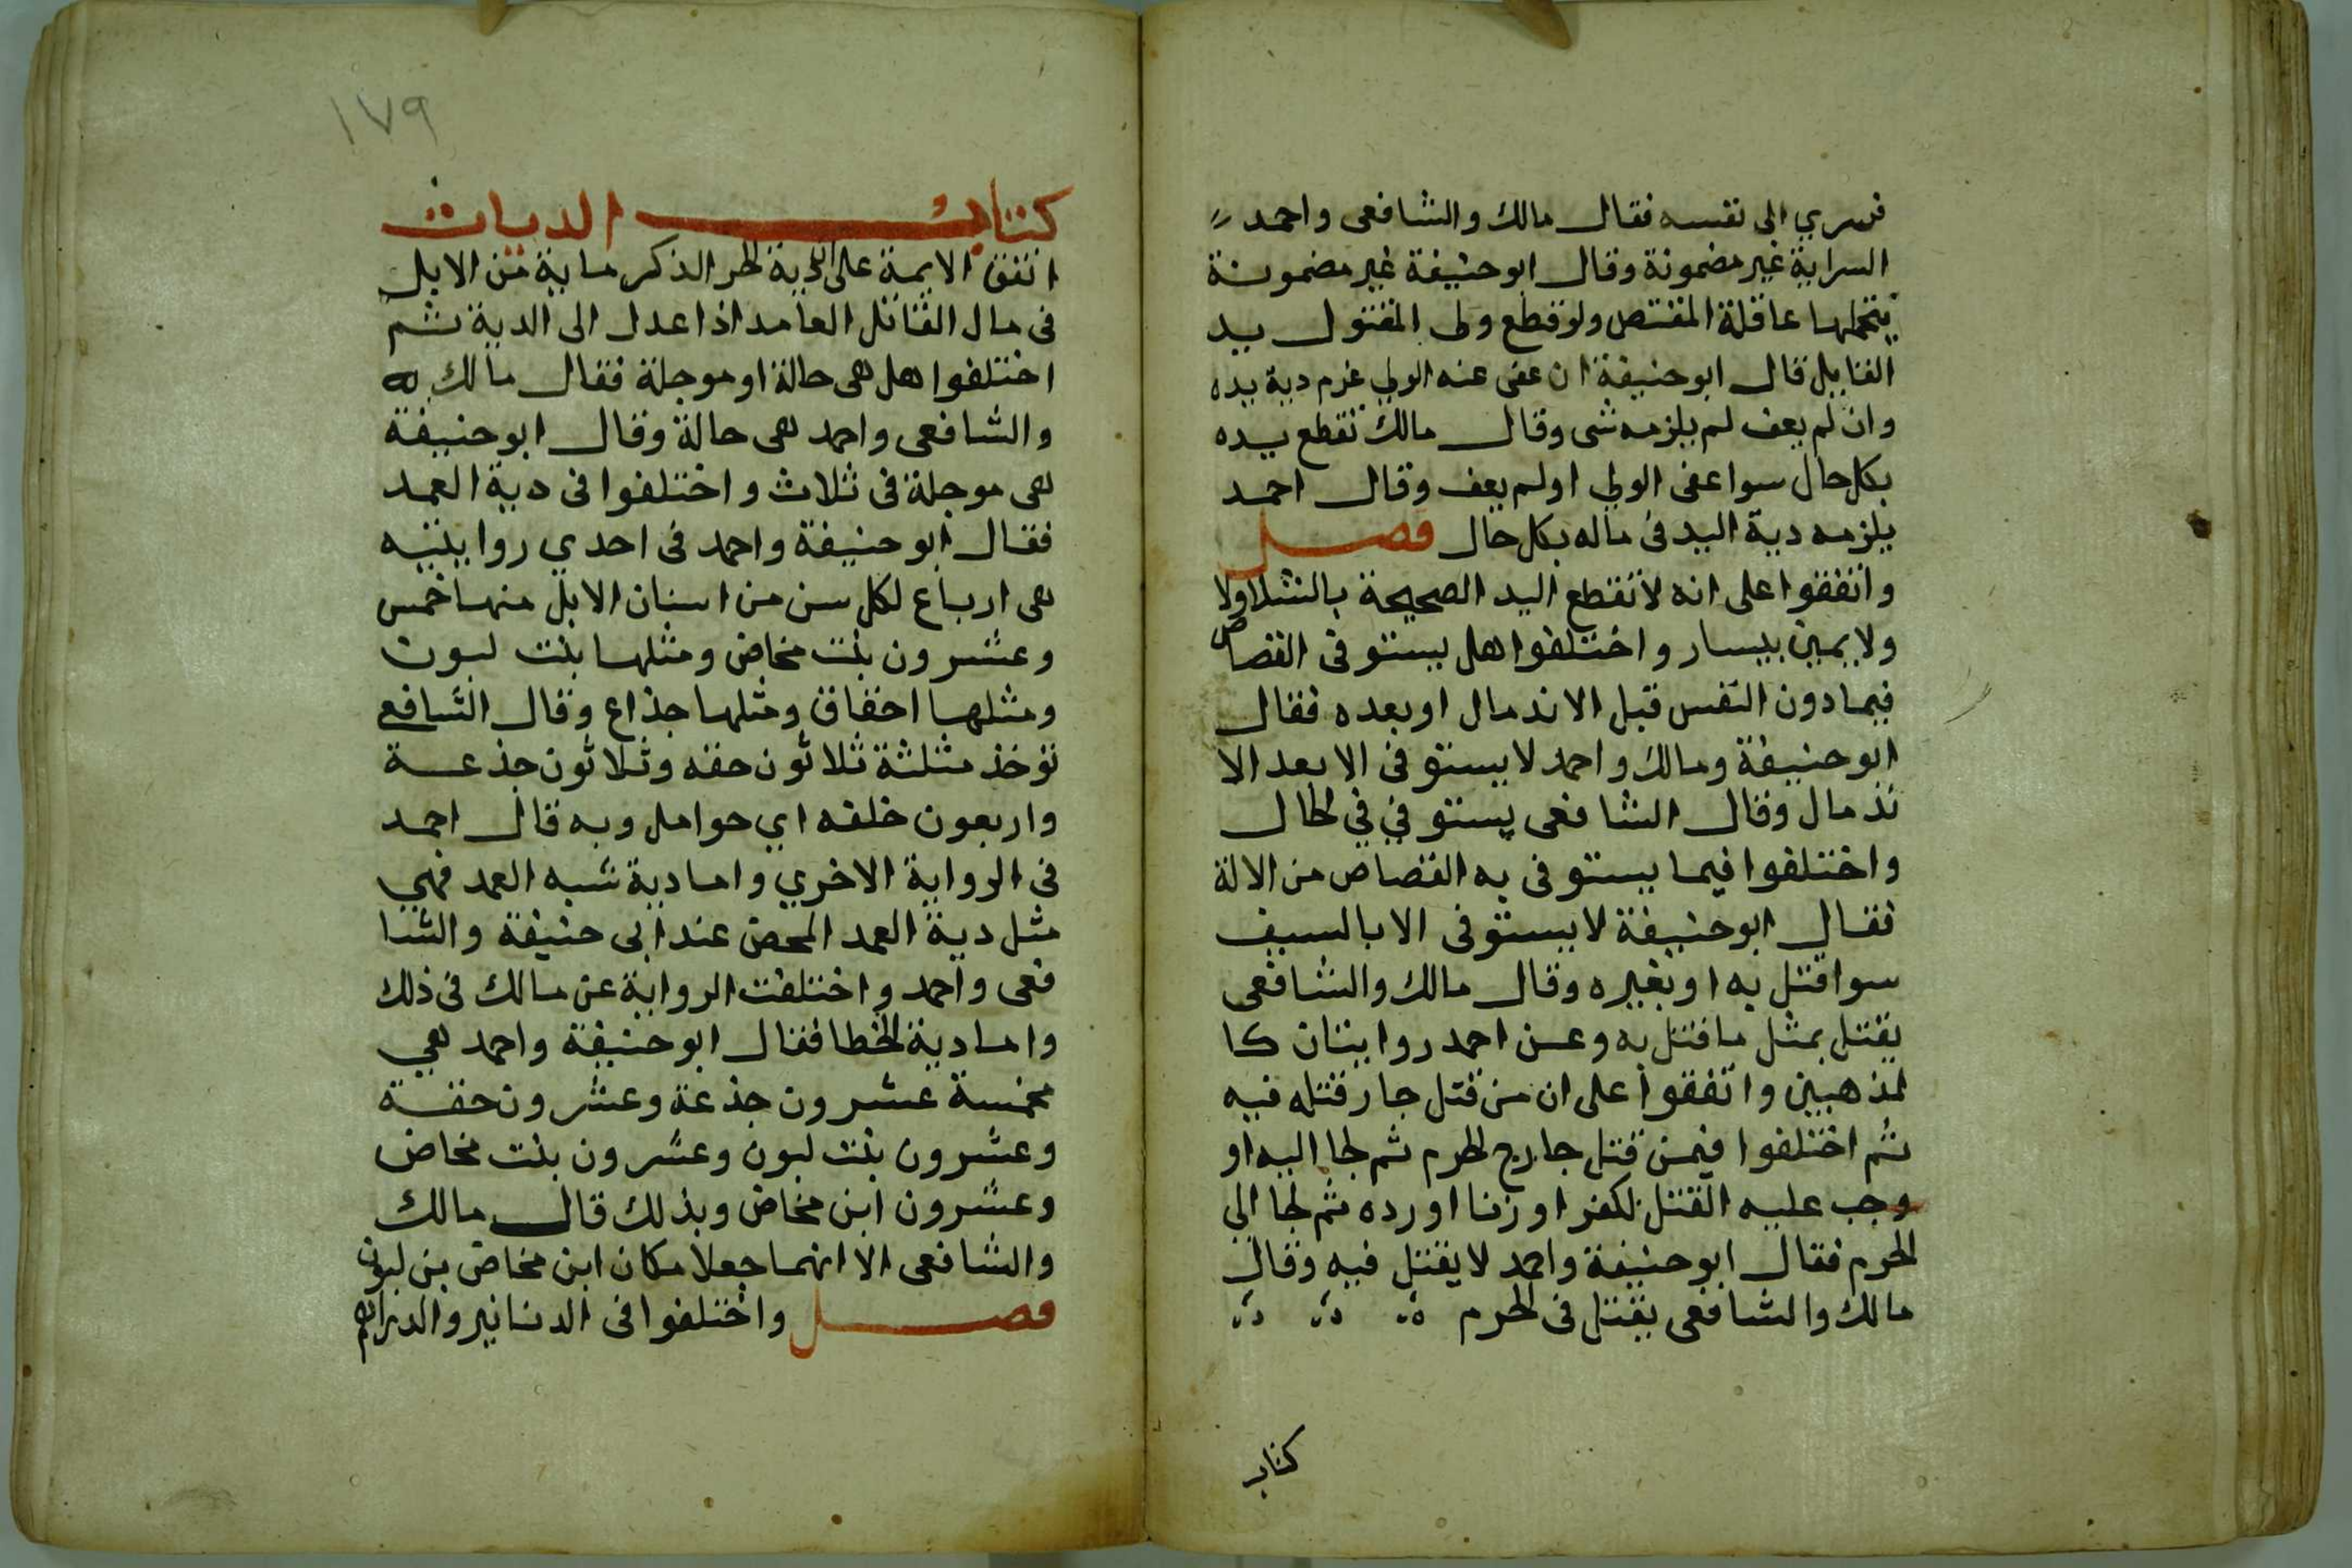 فسري الى نفسه فقال مالك والشافعى واحمد
السراية غير مضمونة وقال ابو حنيفة غير مضمونة
يتحملها عاقلة المقتص ولو قطع ولى المقتول يد
القاتل قال ابو حنيفة ان عفى عنه الولي غرم دية يده
وان لم يعف لم يلزمه شى وقال مالك تقطع يده
بكل حال سوا عفى الولي اولم يعف وقال احمد
يلزمه دية اليد فى ماله بكل حال فصل
واتفقوا على انه لا تقطع اليد الصحيحة بالشلا ولا
ولا يمين بيسار واختلفوا هل يستوفى القصاص
فيما دون النفس قبل الاندمال او بعده فقال
ابو حنيفة ومالك واحمد لا يستوفى الا بعد الا
ندمال وقال الشافعى يستوفي في الحال
واختلفوا فيما يستوفى به القصاص من الالة
فقال ابو حنيفة لا يستوفى الا بالسيف
سوا قتل به او بغيره وقال مالك والشافعى
يقتل بمثل ما قتل به وعن احمد روايتان كا
لمذهبين واتفقوا على ان من قتل جاز قتله فيه
ثم اختلفوا فيمن قتل خارج الحرم ثم لجا اليه او
وجب عليه القتل لكفر او زنا او رده ثم لجا الي
الحرم فقال ابو حنيفة واحمد لا يقتل فيه وقال
مالك والشافعى يقتل فى الحرم
كتاب
١٧٩
كتاب الديات
اتفق الايمة على ان دية الحر الذكر ماية من الابل
فى مال القاتل العامد اذا عدل الى الدية ثم
اختلفوا هل هى حالة او موجلة فقال مالك
والشافعى واحمد هى حالة وقال ابو حنيفة
هى موجلة فى ثلاث واختلفوا فى دية العمد
فقال ابو حنيفة واحمد فى احدي روايتيه
هى ارباع لكل سن من اسنان الابل منها خمس
وعشرون بنت مخاض ومثلها بنت لبون
ومثلها احقاق ومثلها جذاع وقال الشافعى
توخذ مثلثة ثلاثون حقه وثلاثون جذعة
واربعون خلفه اي حوامل وبه قال احمد
فى الرواية الاخري واما دية شبه العمد فهي
مثل دية العمد المحض عند ابى حنيفة والشا
فعى واحمد واختلفت الرواية عن مالك فى ذلك
واما دية الخطا فقال ابو حنيفة واحمد هي
مخمسة عشرون جذعة وعشرون حقة
وعشرون بنت لبون وعشرون بنت مخاض
وعشرون ابن مخاض وبذلك قال مالك
والشافعى الا انهما جعلا مكان ابن مخاض بن لبون
فصل واختلفوا فى الدنانير والدراهم